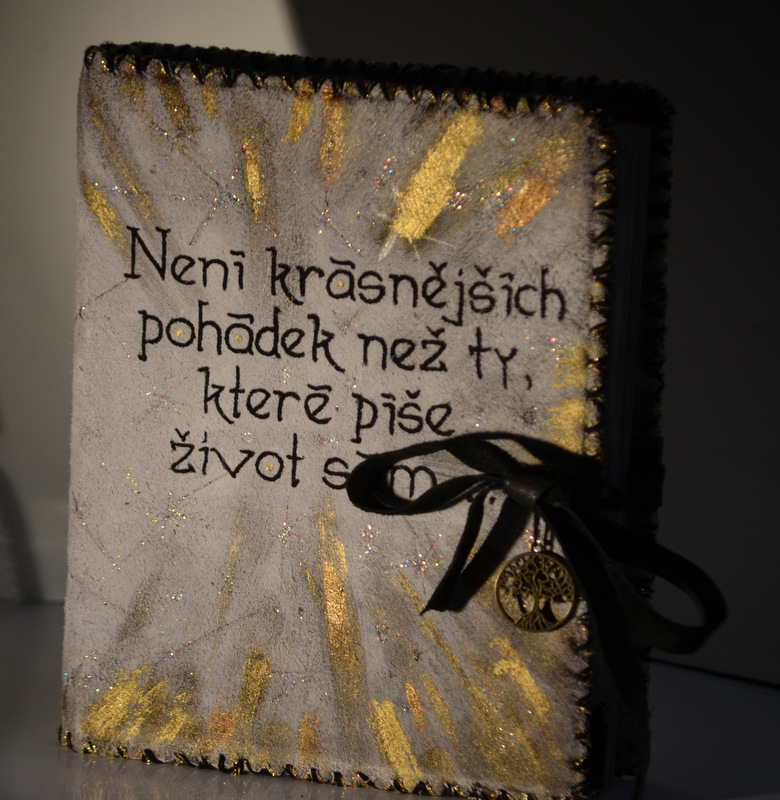 Není krásnějších
pohádek než ty,
které píše
život sám